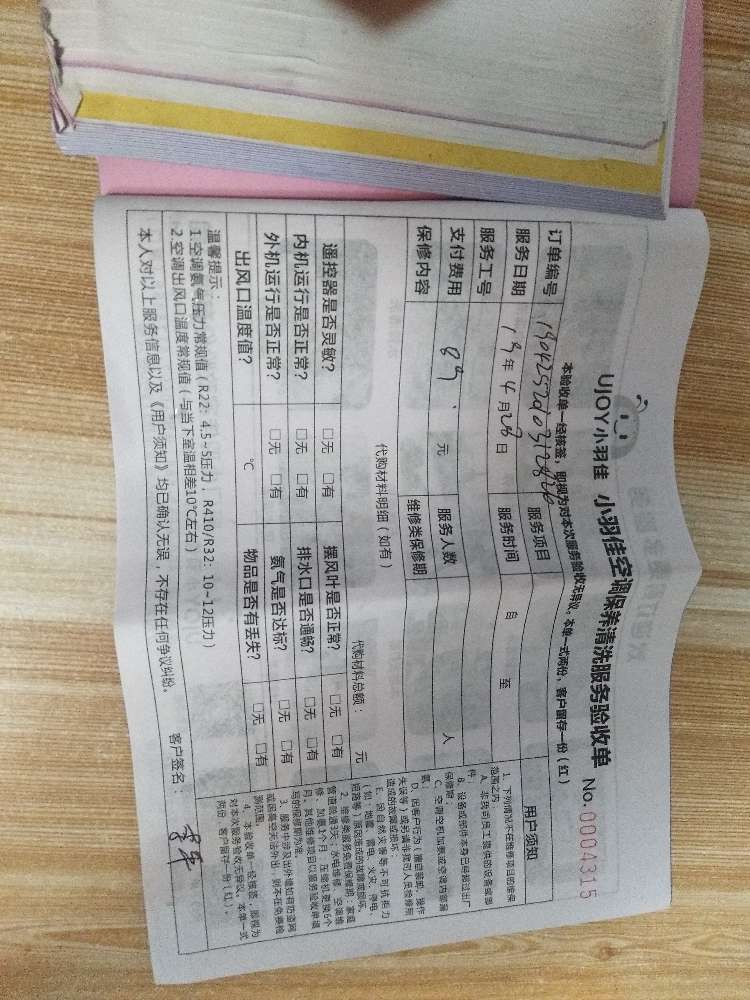 UJOY小羽佳 小羽佳空调保养清洗服务验收单 No.0004315
本验收单一经核签，即视为对本次服务验收无异议。本单一式两份，客户留存一份（红）
订单编号
服务项目
服务日期 19年4月28日 服务时间 自 至
服务工号
支付费用 89. 元 服务人数 人
保修内容 维修类保修期
代购材料明细（如有） 代购材料总额： 元
遥控器是否灵敏？ □无 □有 摆风叶是否正常？ □无 □有
内机运行是否正常？ □无 □有 排水口是否通畅？ □无 □有
外机运行是否正常？ □无 □有 氨气是否达标？ □无 □有
出风口温度值？ ℃ 物品是否有丢失？ □无 □有
温馨提示：
1.空调氨气压力常规值（R22：4.5~5压力，R410/R32：10~12压力）
2.空调出风口温度常规值（与当下室温相差10℃左右）
本人对以上服务信息以及《用户须知》均已确认无误，不存在任何争议纠纷。
客户签名：
用户须知
1、下列情况不在维修项目的维保
范围之内
A、非我司员工提供的设备或部
件
B、设备或部件本身已经超过出厂
保修期；
C、空调空机加氨或空调内部漏
氨；
D、因客户行为（擅自装卸、操作
失误等）或另请非我司人员检修所
造成的故障或损坏；
E、因自然灾害等不可抗拒力
（如：地震、雷电、火灾、停电、
短路等）原因造成的故障或损坏。
2、维修类服务免费保修期：家庭
管道疏通3天、水电维修、空调维
修、加氨1个月、压缩机更换6个
月，其他维修项目以服务验收单填
写的保修期为准。
3、服务中涉及出外墙如有防盗网
或因高空无法外出，则不在免费检
测范围。
4、本验收单一经核签，即视为
对本次服务验收无异议。本单一式
两份，客户留存一份（红）。